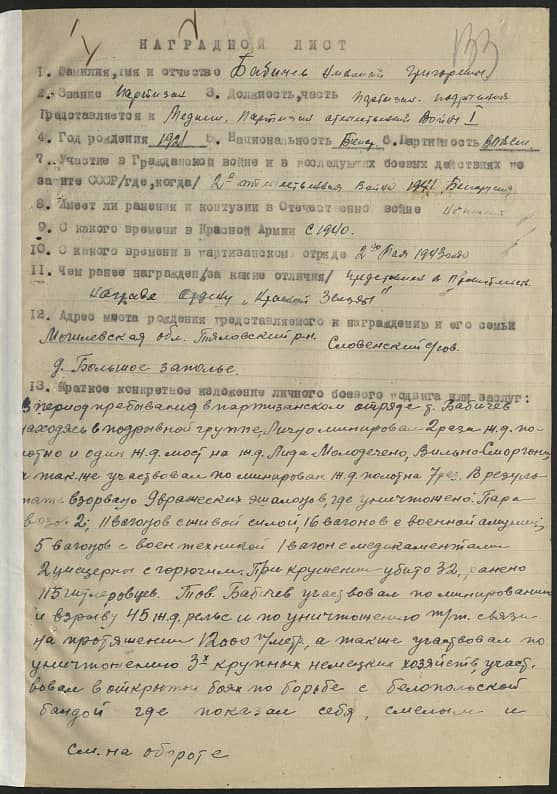 133
НАГРАДНОЙ ЛИСТ
1. Фамилия, имя и отчество Бабичев Николай Григорьевич
2. Звание партизан 3. Должность, часть партизан. подрывник
Представляется к Медали „Партизан отечественной Войны I
4. Год рождения 1921 5. Национальность Белор. 6. Партийность ВЛКСМ
7. Участие в Гражданской войне и в последующих боевых действиях по
защите СССР/где, когда/ 2ая отечественная Война 1941 Белорусия
8. Имеет ли ранения и контузии в Отечественно войне
9. С какого времени в Красной Армии с 1940.
10. С какого времени в партизанском отряде 2го Мая 1943 года
11. Чем ранее награжден/за какие отличия/ представлен к Правительств.
награде Ордену „Красной Звезды"
12. Адрес места рождения представляемого к награждению и его семьи
Могилевская обл. р-н. Словенский с/сов.
д. Большое заполье.
13. Краткое конкретное изложение личного боевого подвига или заслуг:
В период пребывания в партизанском отряде т. Бабичев
находясь в подрывной группе, Лично минировал 2 раза ж.д. по-
лотно и один ж.д. мост на ж.д. Лида Молодечено, Вильно-Сморгонь
а также участвовал по минирован ж.д. полотна 7 раз. В резуль-
тате взорвано 9 вражеских эшалонов, где уничтожено: Пара
возов 2; 11 вагонов с живой силой, 16 вагонов с военной амуниц;
5 вагонов с воен техникой 1 вагон с медикаментами
2 цистерны с горючим. При крушении убито 32, ранено
115 гитлеровцев. Тов. Бабичев участвовал по минированию
и взрыву 45 ж.д. рельс и по уничтожению т/т. связи
на протяжении 12000 п/метр, а также участвовал по
уничтожению 3х крупных немецких хозяйств, участ.
вовал в открытых боях по борьбе с белопольской
бандой где показал себя, смелым и
см. на обороте